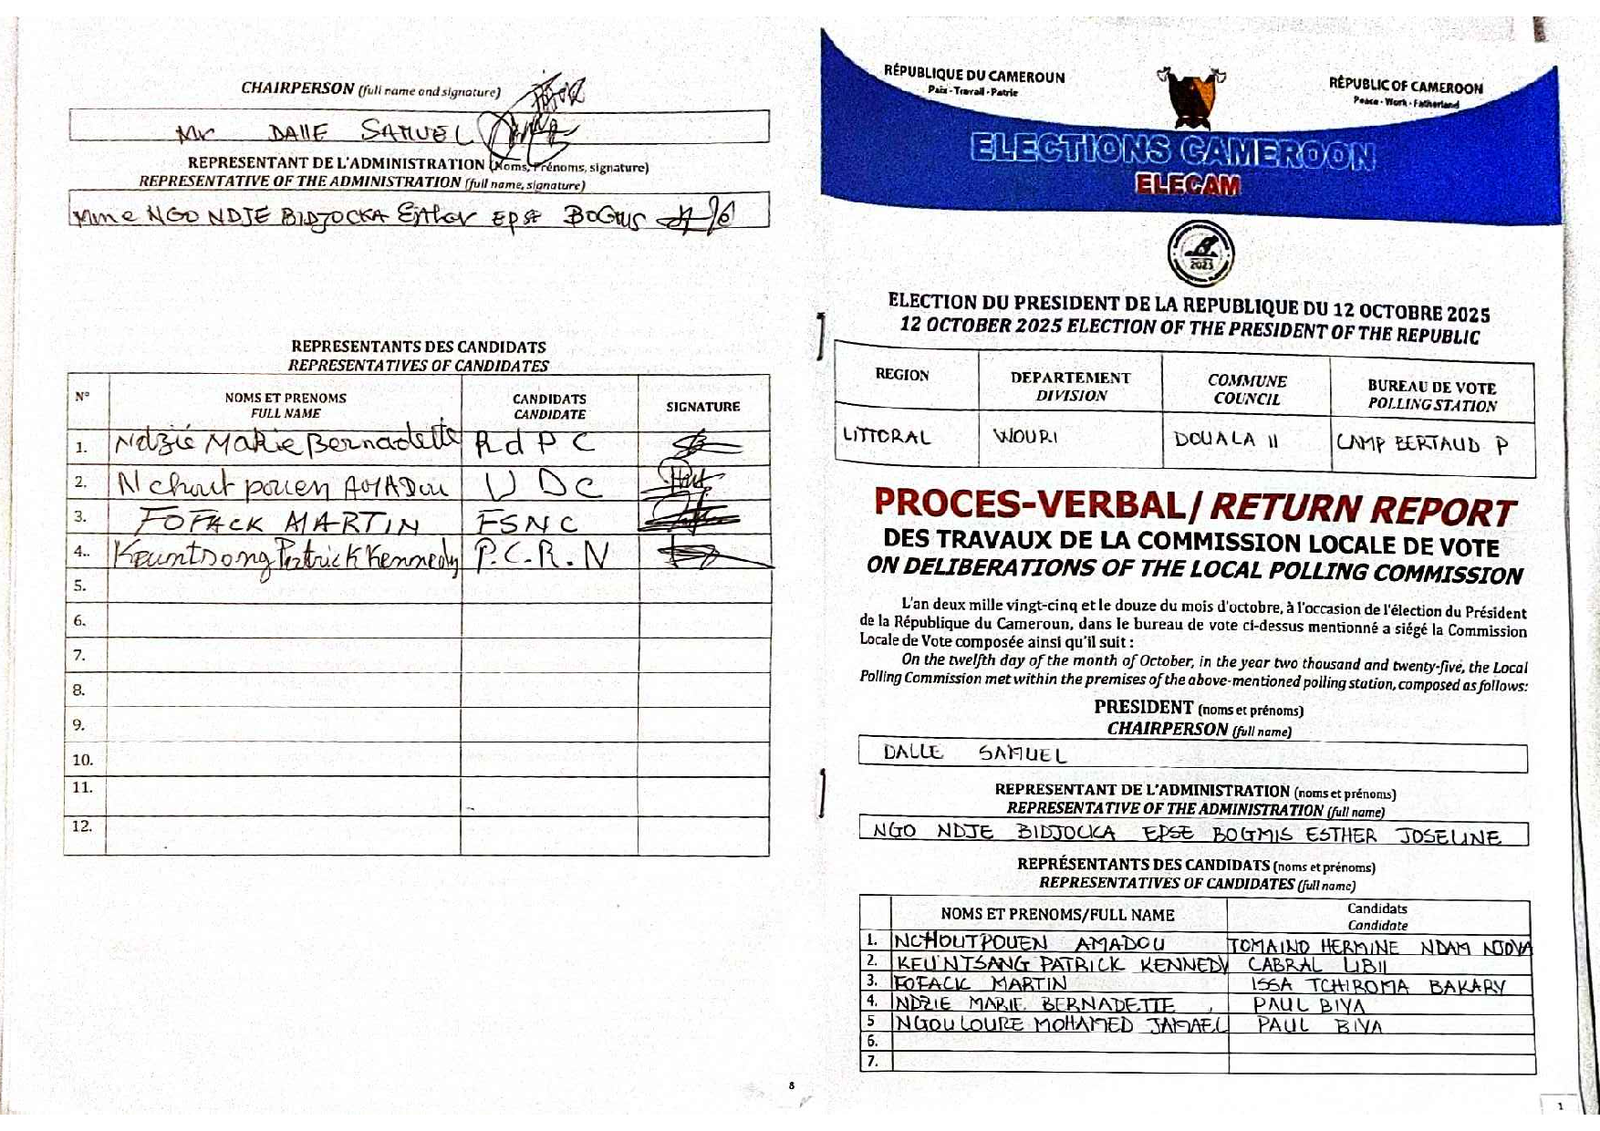 CHAIRPERSON (full name and signature)
Mr DALLE SAMUEL
REPRESENTANT DE L'ADMINISTRATION (Noms, Prénoms, signature)
REPRESENTATIVE OF THE ADMINISTRATION (full name, signature)
Mme NGO NDJE BIDJOCKA Esther EPSE BOGMIS
REPRESENTANTS DES CANDIDATS
REPRESENTATIVES OF CANDIDATES
N° NOMS ET PRENOMS CANDIDATS SIGNATURE
FULL NAME CANDIDATE
1. Ndzié Marie Bernadette RdPC
2. Nchout pouen AMADou UDC
3. FOFACK MARTIN FSNC
4.. Keuntsong Patrick Kennedy P.C.R.N
5.
6.
7.
8.
9.
10.
11.
12.
8
RÉPUBLIQUE DU CAMEROUN
Paix - Travail - Patrie
RÉPUBLIC OF CAMEROON
Peace - Work - Fatherland
ELECTIONS CAMEROON
ELECAM
2025
ELECTION DU PRESIDENT DE LA REPUBLIQUE DU 12 OCTOBRE 2025
12 OCTOBER 2025 ELECTION OF THE PRESIDENT OF THE REPUBLIC
REGION DEPARTEMENT COMMUNE BUREAU DE VOTE
DIVISION COUNCIL POLLING STATION
LITTORAL WOURI DOUALA II CAMP BERTAUD P
PROCES-VERBAL/ RETURN REPORT
DES TRAVAUX DE LA COMMISSION LOCALE DE VOTE
ON DELIBERATIONS OF THE LOCAL POLLING COMMISSION
L'an deux mille vingt-cinq et le douze du mois d'octobre, à l'occasion de l'élection du Président
de la République du Cameroun, dans le bureau de vote ci-dessus mentionné a siégé la Commission
Locale de Vote composée ainsi qu'il suit :
On the twelfth day of the month of October, in the year two thousand and twenty-five, the Local
Polling Commission met within the premises of the above-mentioned polling station, composed as follows:
PRESIDENT (noms et prénoms)
CHAIRPERSON (full name)
DALLE SAMUEL
REPRESENTANT DE L'ADMINISTRATION (noms et prénoms)
REPRESENTATIVE OF THE ADMINISTRATION (full name)
NGO NDJE BIDJOCKA EPSE BOGMIS ESTHER JOSELINE
REPRÉSENTANTS DES CANDIDATS (noms et prénoms)
REPRESENTATIVES OF CANDIDATES (full name)
NOMS ET PRENOMS/FULL NAME Candidats
Candidate
1. NCHOUTPOUEN AMADOU TOMAINO HERMINE NDAM NJOYA
2. KEUNTSANG PATRICK KENNEDY CABRAL LIBII
3. FOFACK MARTIN ISSA TCHIROMA BAKARY
4. NDZIE MARIE BERNADETTE PAUL BIYA
5 NGOULOURE MOHAMED JAMAEL PAUL BIYA
6.
7.
1